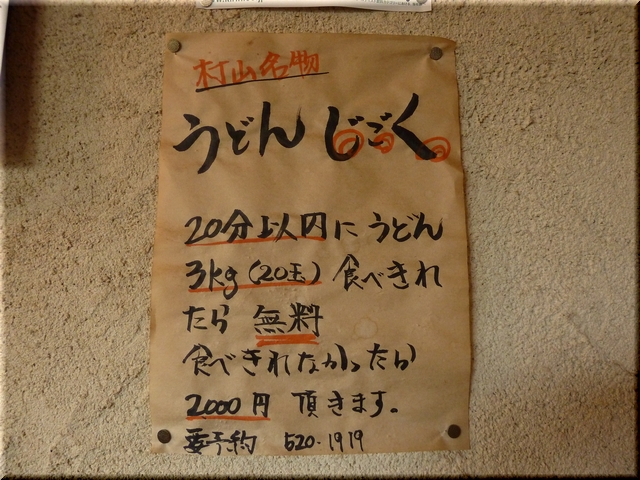 村山名物
うどんじごく
20分以内にうどん
3kg(20玉)食べきれ
たら 無料
食べきれなかったら
2,000円 頂きます。
要予約 520-1919